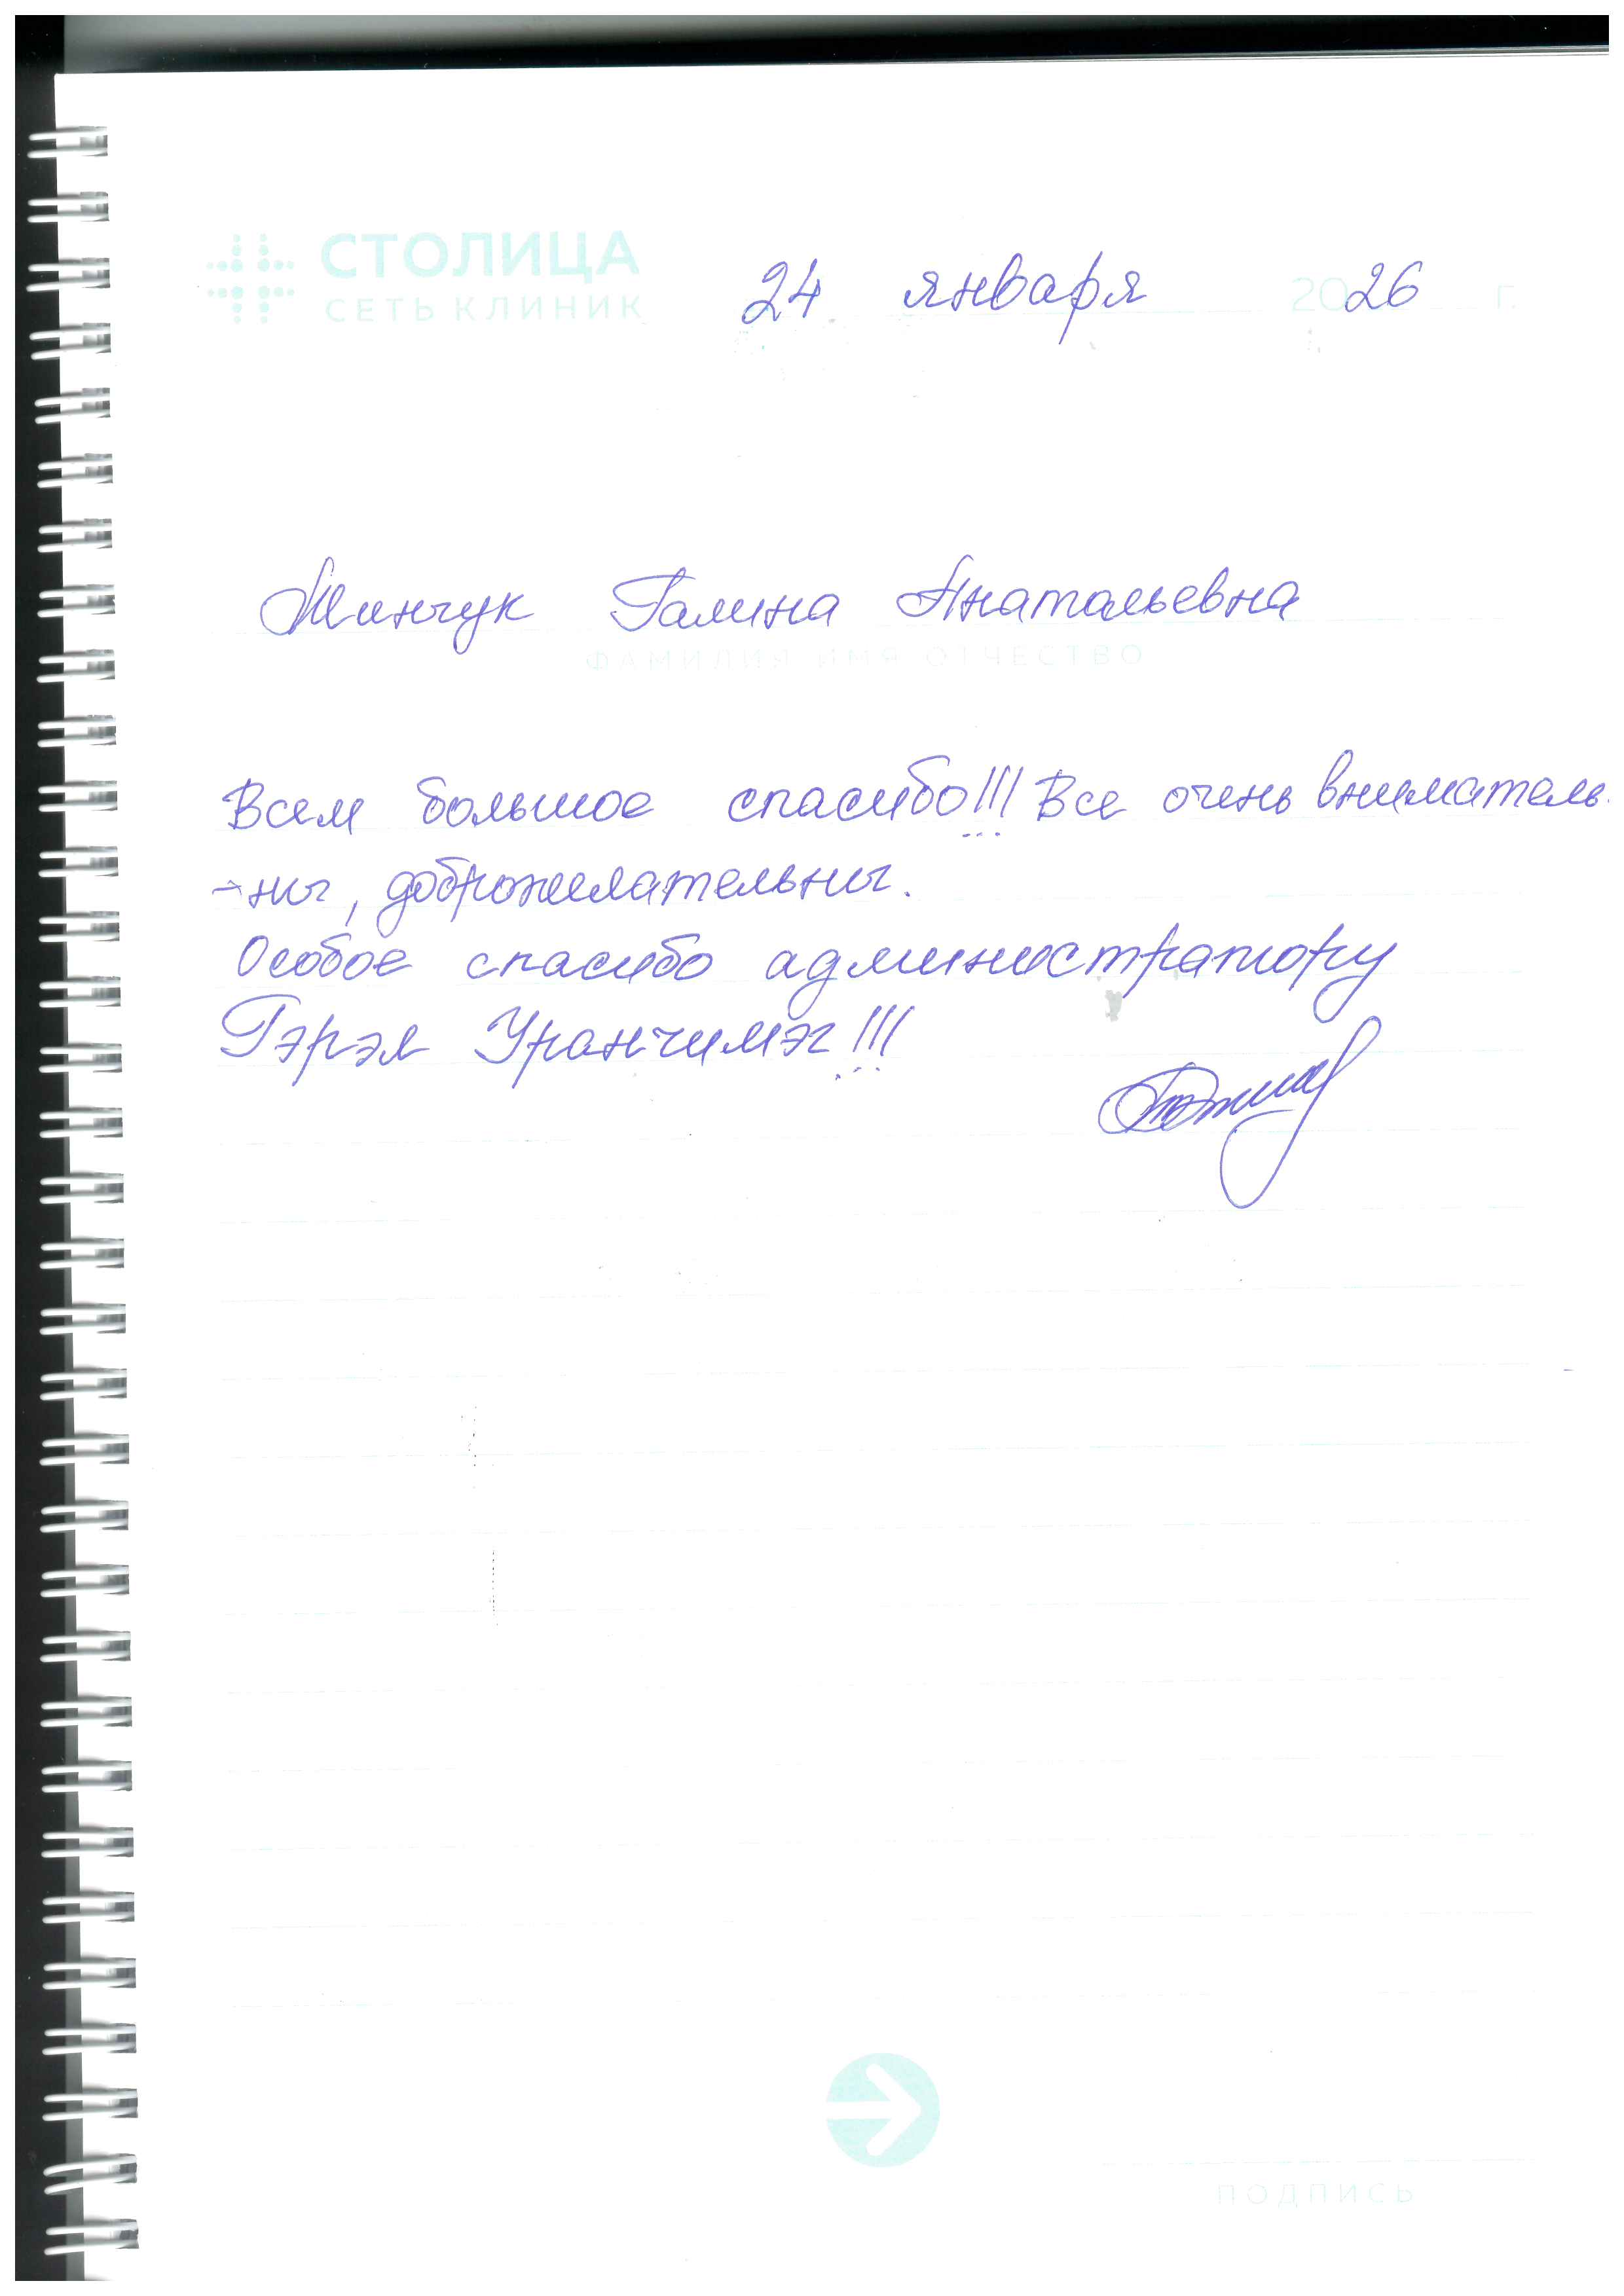 СТОЛИЦА
СЕТЬ КЛИНИК
24 января 2026 г.
Галина Анатальевна
ФАМИЛИЯ ИМЯ ОТЧЕСТВО
Всем большое спасибо!!! Все очень вниматель-
-ны, доброжелательны.
Особое спасибо администратору
Гэрэл Уранчимэг!!!
ПОДПИСЬ